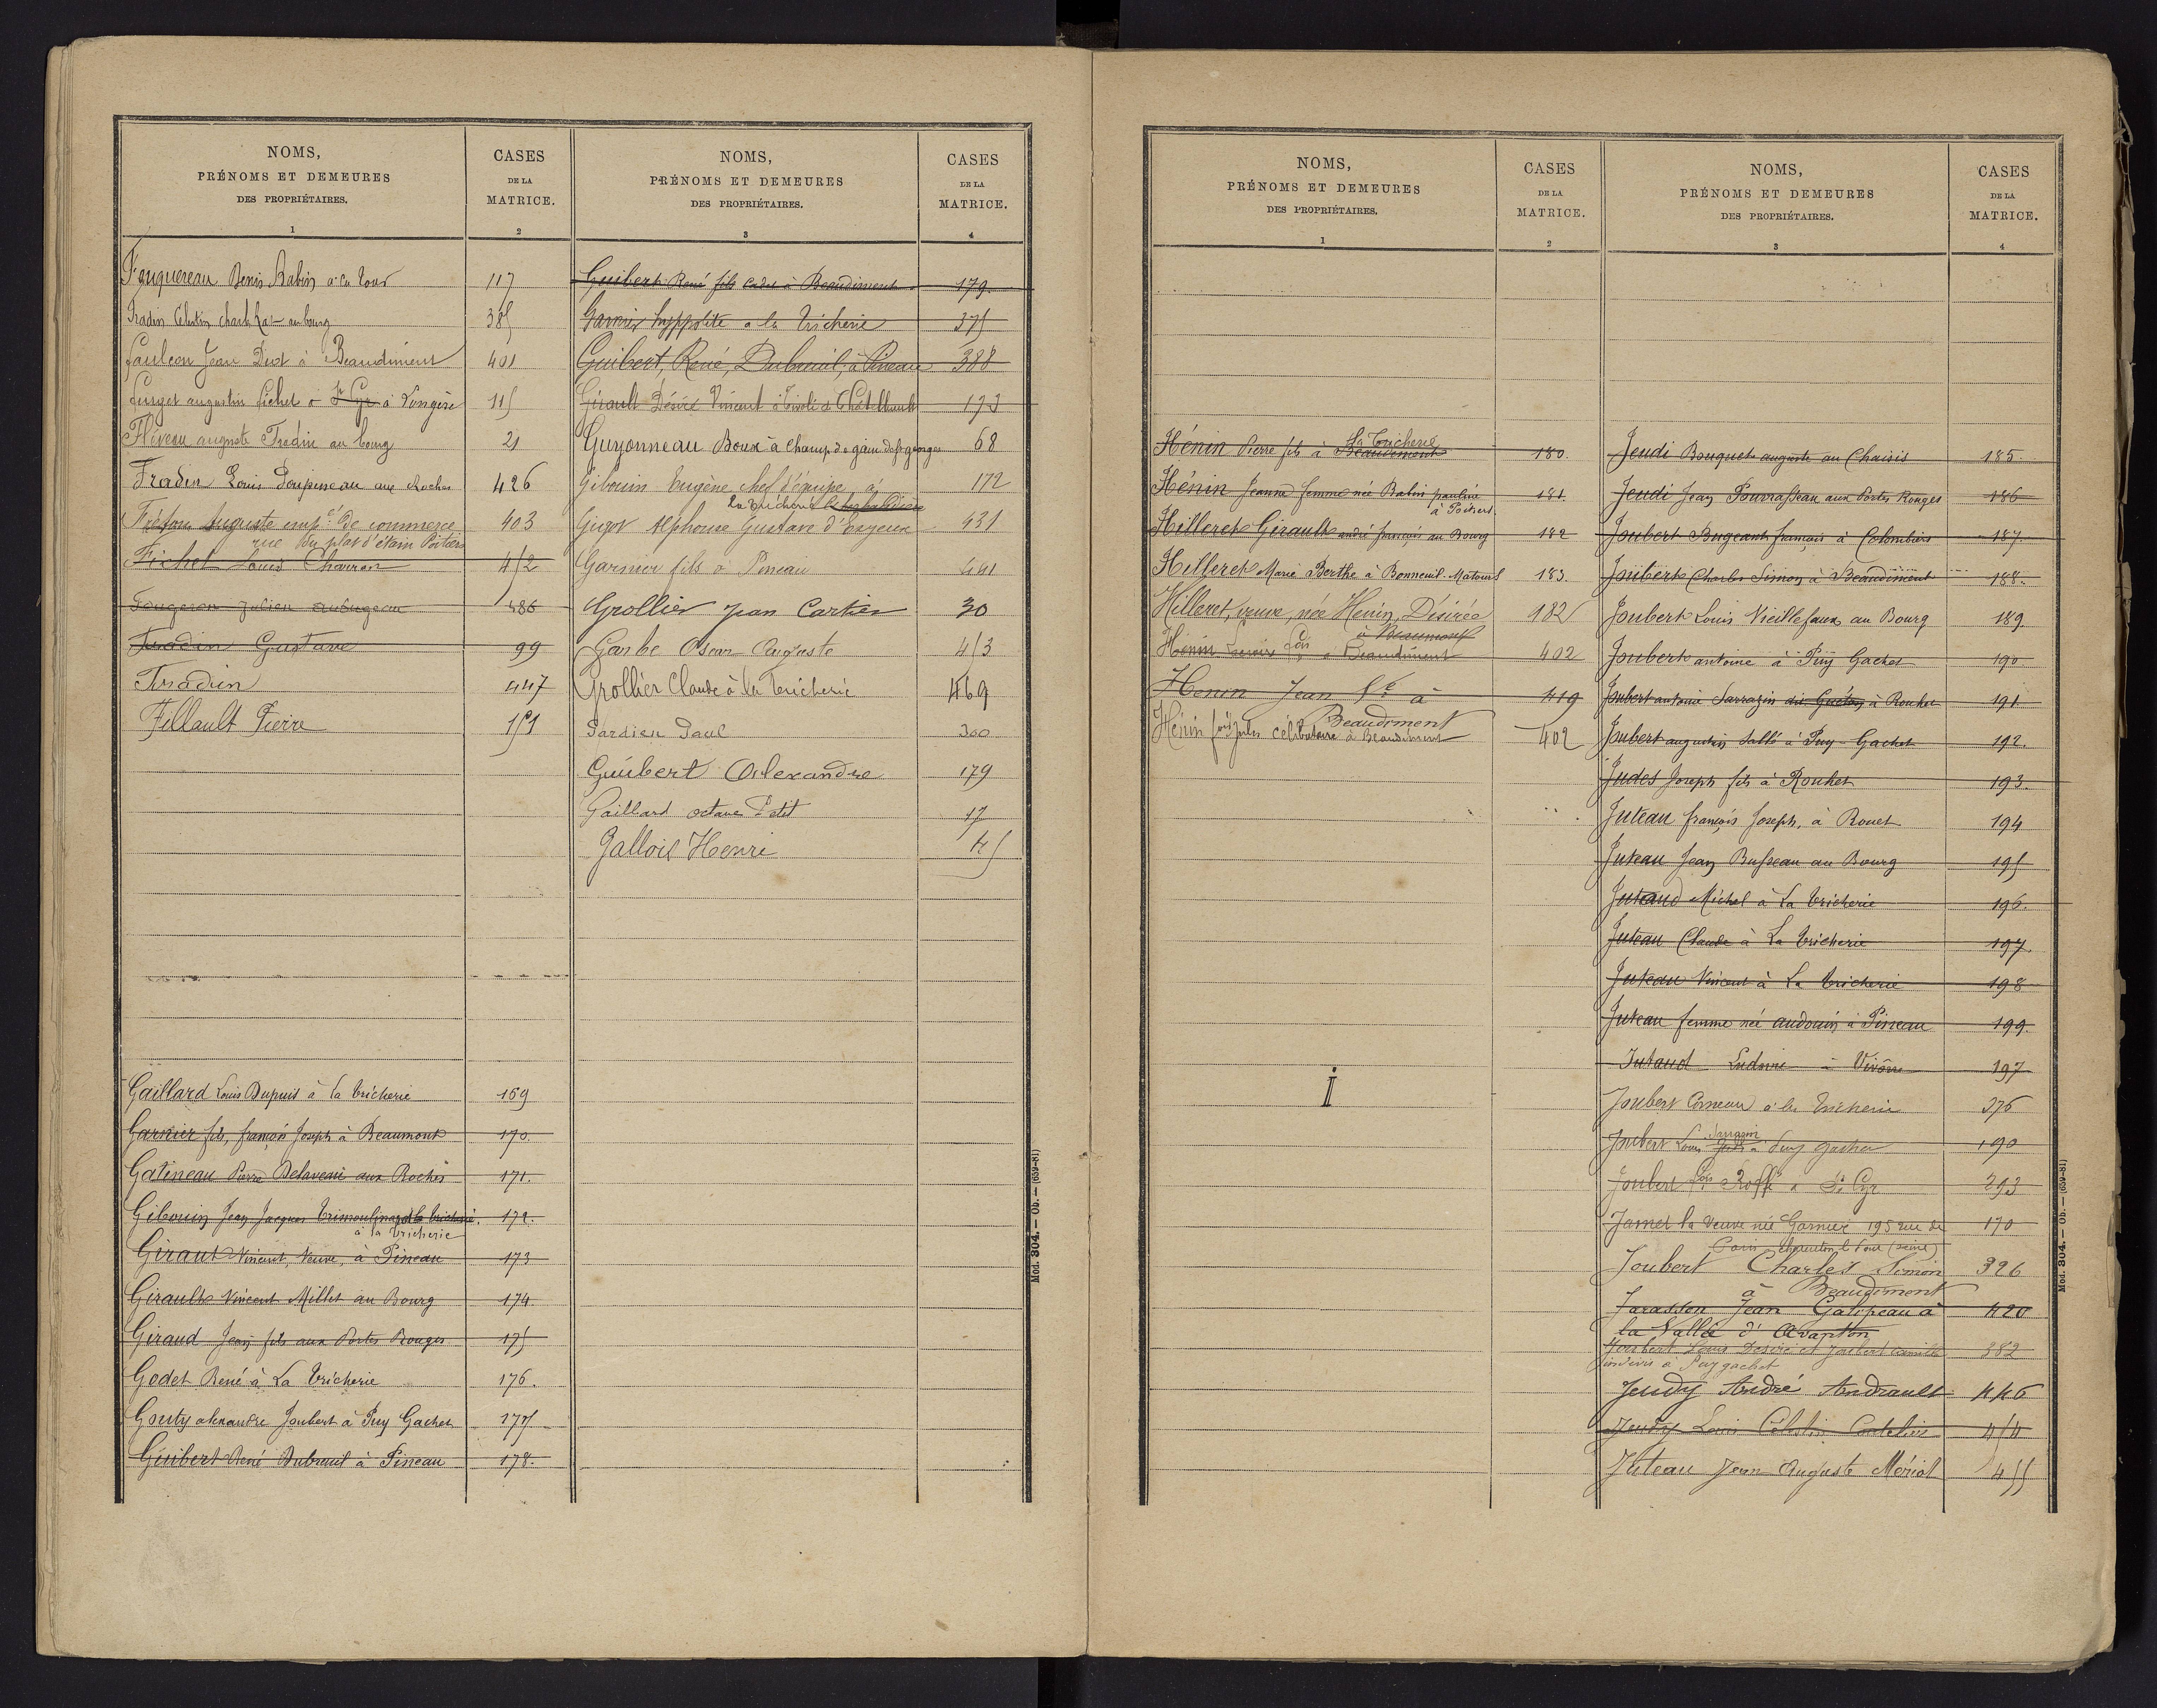 NOMS,
PRÉNOMS ET DEMEURES
DES PROPRIÉTAIRES.
1
CASES
DE LA
MATRICE.
2
Fouquereau Denis Babin à la Tour 117
Fradin Célestin au bourg 385
Fauleon Jean Diot à Beaudiment 401
augustin Fichet à St Cyr à Longère 115
Fléveau auguste Fradin au bourg 21
Fradin Louis Doupineau aux Roches 426
Tréfou Auguste empé de commerce 403
rue du plat d'étain Poitiers
Fichet Louis Charron 452
Fougeron Julien 486
Fradin Gustave 99
Fradin 447
Fillault Pierre 151
Gaillard Louis Dupuis à la Tricherie 169
Garnier fils, françois Joseph à Beaumont 170.
Gatineau Pierre Delaveau aux Roches 171.
Gibouin Jean Jacques Trimoulinard à la Tricherie. 172.
à la Tricherie
Giraut Vincent, Veuve, à Pineau 173
Girault Vincent Millet au Bourg 174
Giraud Jean fils aux Portes Rouges 175
Godet René à La Tricherie 176.
Gouty alexandre Joubert à Puy Gachet 177
Guibert René Dubreuil à Pineau 178.
NOMS,
PRÉNOMS ET DEMEURES
DES PROPRIÉTAIRES.
3
CASES
DE LA
MATRICE.
4
Guibert René fils cadet à Beaudiment 179.
Garnier hyppolite à la Tricherie 375
Guibert, René, Dubreuil, à Pineau 388
Girault Désiré Vincent à Tivoli à Châtellerault 173
Guyonneau Boux à Champ de gain de St georges 68
Gibouin Eugène chef d'équipe à 172
La Tricherie
Gigot Alphonse Gustave d'Enjeux 431
Garnier fils à Pineau 441
Grollier Jean Cartier 30
Garbe Oscar Auguste 453
Grollier Claude à la Tricherie 469
Gardien Paul 300
Guibert Alexandre 179
Gaillard octave Petit 17
Gallois Henri 45
Mod. 304. — Ob. — (639-81)
NOMS,
PRÉNOMS ET DEMEURES
DES PROPRIÉTAIRES.
1
CASES
DE LA
MATRICE.
2
La Tricherie
Hénin Pierre fils à Beaudiment 180.
Hénin Jeanne femme née Babin pauline 181.
à Poitiers.
Hilleret Girault andré françois au Bourg 182
Hilleret Marie Berthe à Bonneuil-Matours 183.
Hilleret, veuve, née Henin, Désirée 182
à Beaumont
Hénin fois à Beaudiment 402
Henin Jean à 419
Beaudiment
Hénin fois Jules célibataire à Beaudiment 402
I
NOMS,
PRÉNOMS ET DEMEURES
DES PROPRIÉTAIRES.
3
CASES
DE LA
MATRICE.
4
Jeudi Bouquet auguste au Chaisis 185.
Jeudi Jean Pourrasseau aux Portes Rouges 186
Joubert Bugeant françois à Colombiers 187.
Joubert Charles Simon à Beaudiment 188.
Joubert Louis Vieillefaux au Bourg 189.
Joubert antoine à Puy Gachet 190
Joubert antoine Sarrazin à Rouhet 191.
Joubert augustin Sallé à Puy-Gachet 192.
Judes Joseph fils à Rouhet 193.
Juteau françois Joseph, à Rouet 194
Juteau Jean Busseau au Bourg 195
Juteaud Michel à La Tricherie 196.
Juteau Claude à La Tricherie 197.
Juteau Vincent à La Tricherie 198
Juteau femme née audouin à Pineau 199.
Jutaud Ludovic à Vivône 197
Joubert Corneau à la Tricherie 376
Sarrazin
Joubert Louis à Puy gachet 190
Joubert fois Roffé à St Cyr 293
Jamet la Veuve née Garnier 195 rue de 170
Paris Charenton le Pont (seine)
Joubert Charles Simon 326
à Beaudiment
Jarassen Jean Galipeau à 420
la Vallée d'Avanton
Joubert Louis Désiré et Joubert Camille 382
indivis à Puygachet
Jeudy André Andrault 446
Jeudy Louis Célestin 454
Juteau Jean Auguste Mériot 455
Mod. 304. — Ob. — (639-81)